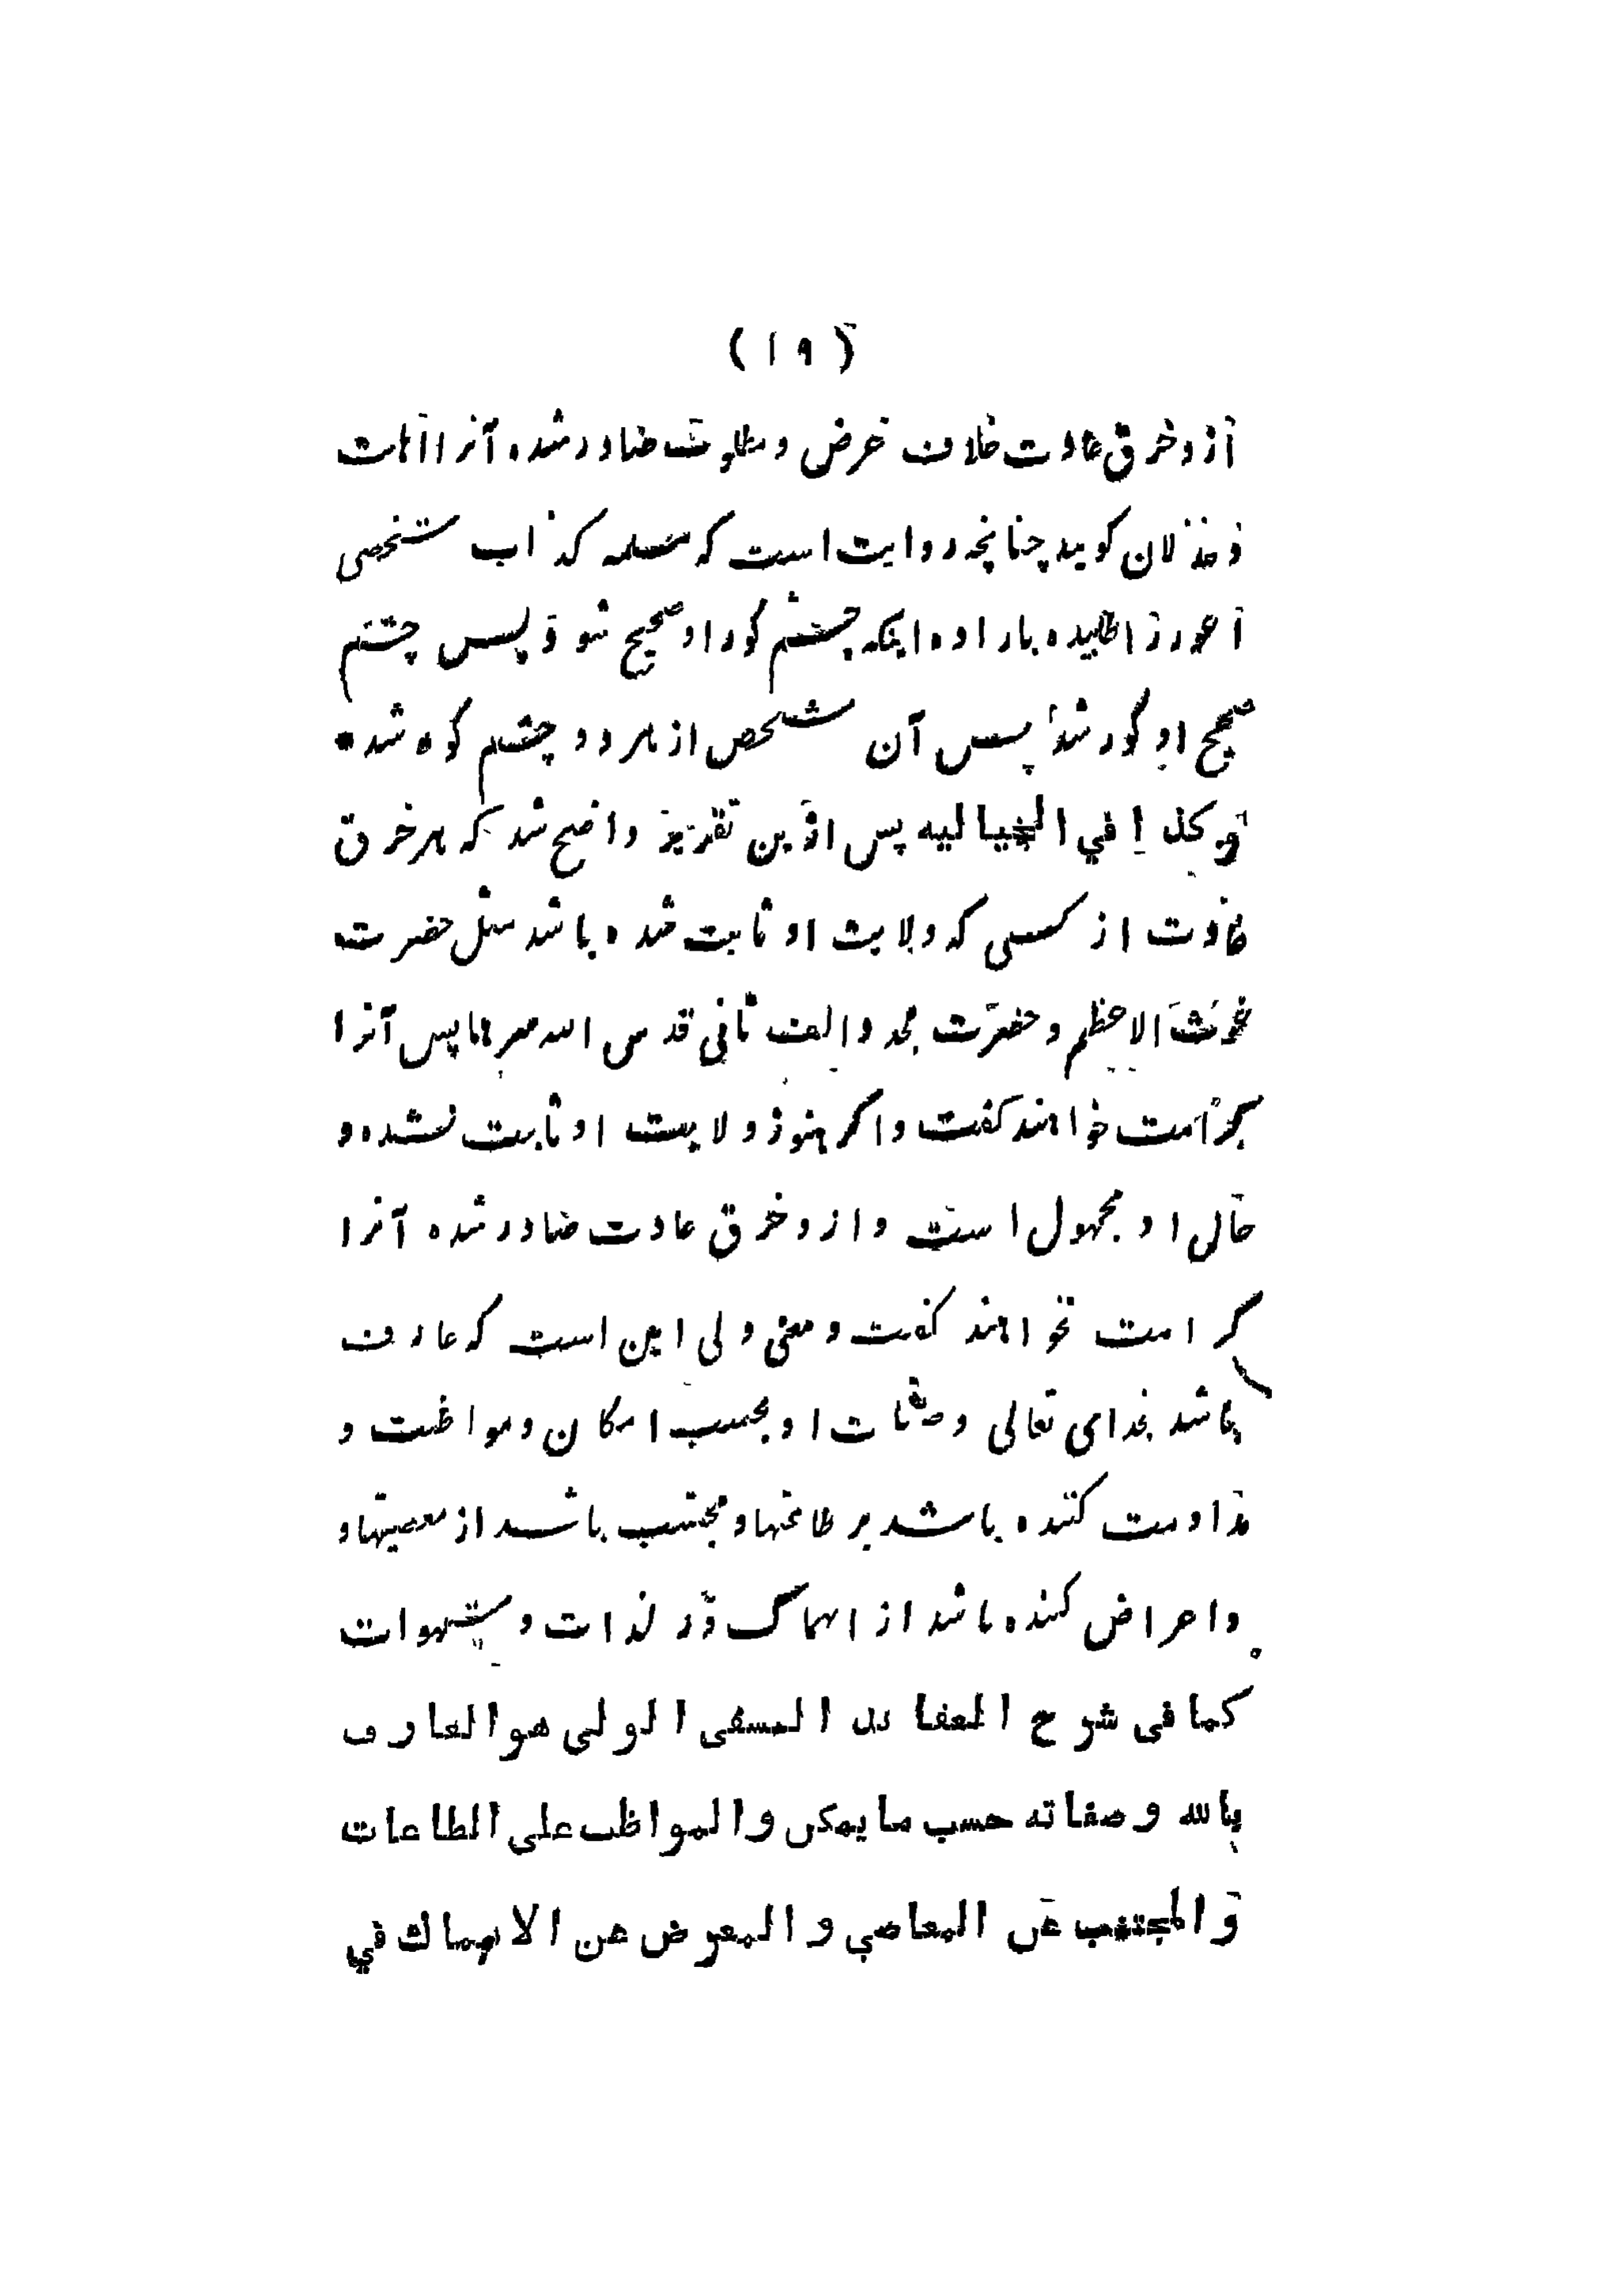 (۱۹)
از و خرق عادت خلاف غرض و مطلوبش صادر شده آنرا اهانت
و خذلان گویند چنانچه روایت است که مسیلمه کذاب شخصی
اعور را طلبیده باراده اینکه چشم کور او صحیح شود پس چشم
صحیح او کور شد پس آن شخص از هر دو چشم کور شد *
و کذا في الخياليه پس ازین تقریر واضح شد که هر خرق
عادت از کسی که ولایت او ثابت شده باشد مثل حضرت
غوث الاعظم و حضرت مجدد الف ثانی قدس الله سرهما پس آنرا
کرامت خواهند گفت و اگر هنوز ولایت او ثابت نشده و
حال او مجهول است و از و خرق عادت صادر شده آنرا
کرامت نخواهند گفت و معنی ولی این است که عارف
باشد بخدای تعالی و صفات او بحسب امکان و مواظبت و
مداومت کننده باشد بر طاعتها و مجتنب باشد از معصیتها و
و اعراض کننده باشد از انهماک در لذات و شهوات
كما فى شرح العقائد النسفى الولى هو العارف
بالله وصفاته حسب ما يمكن والمواظب على الطاعات
والمجتنب عن المعاصي والمعرض عن الانهماك في